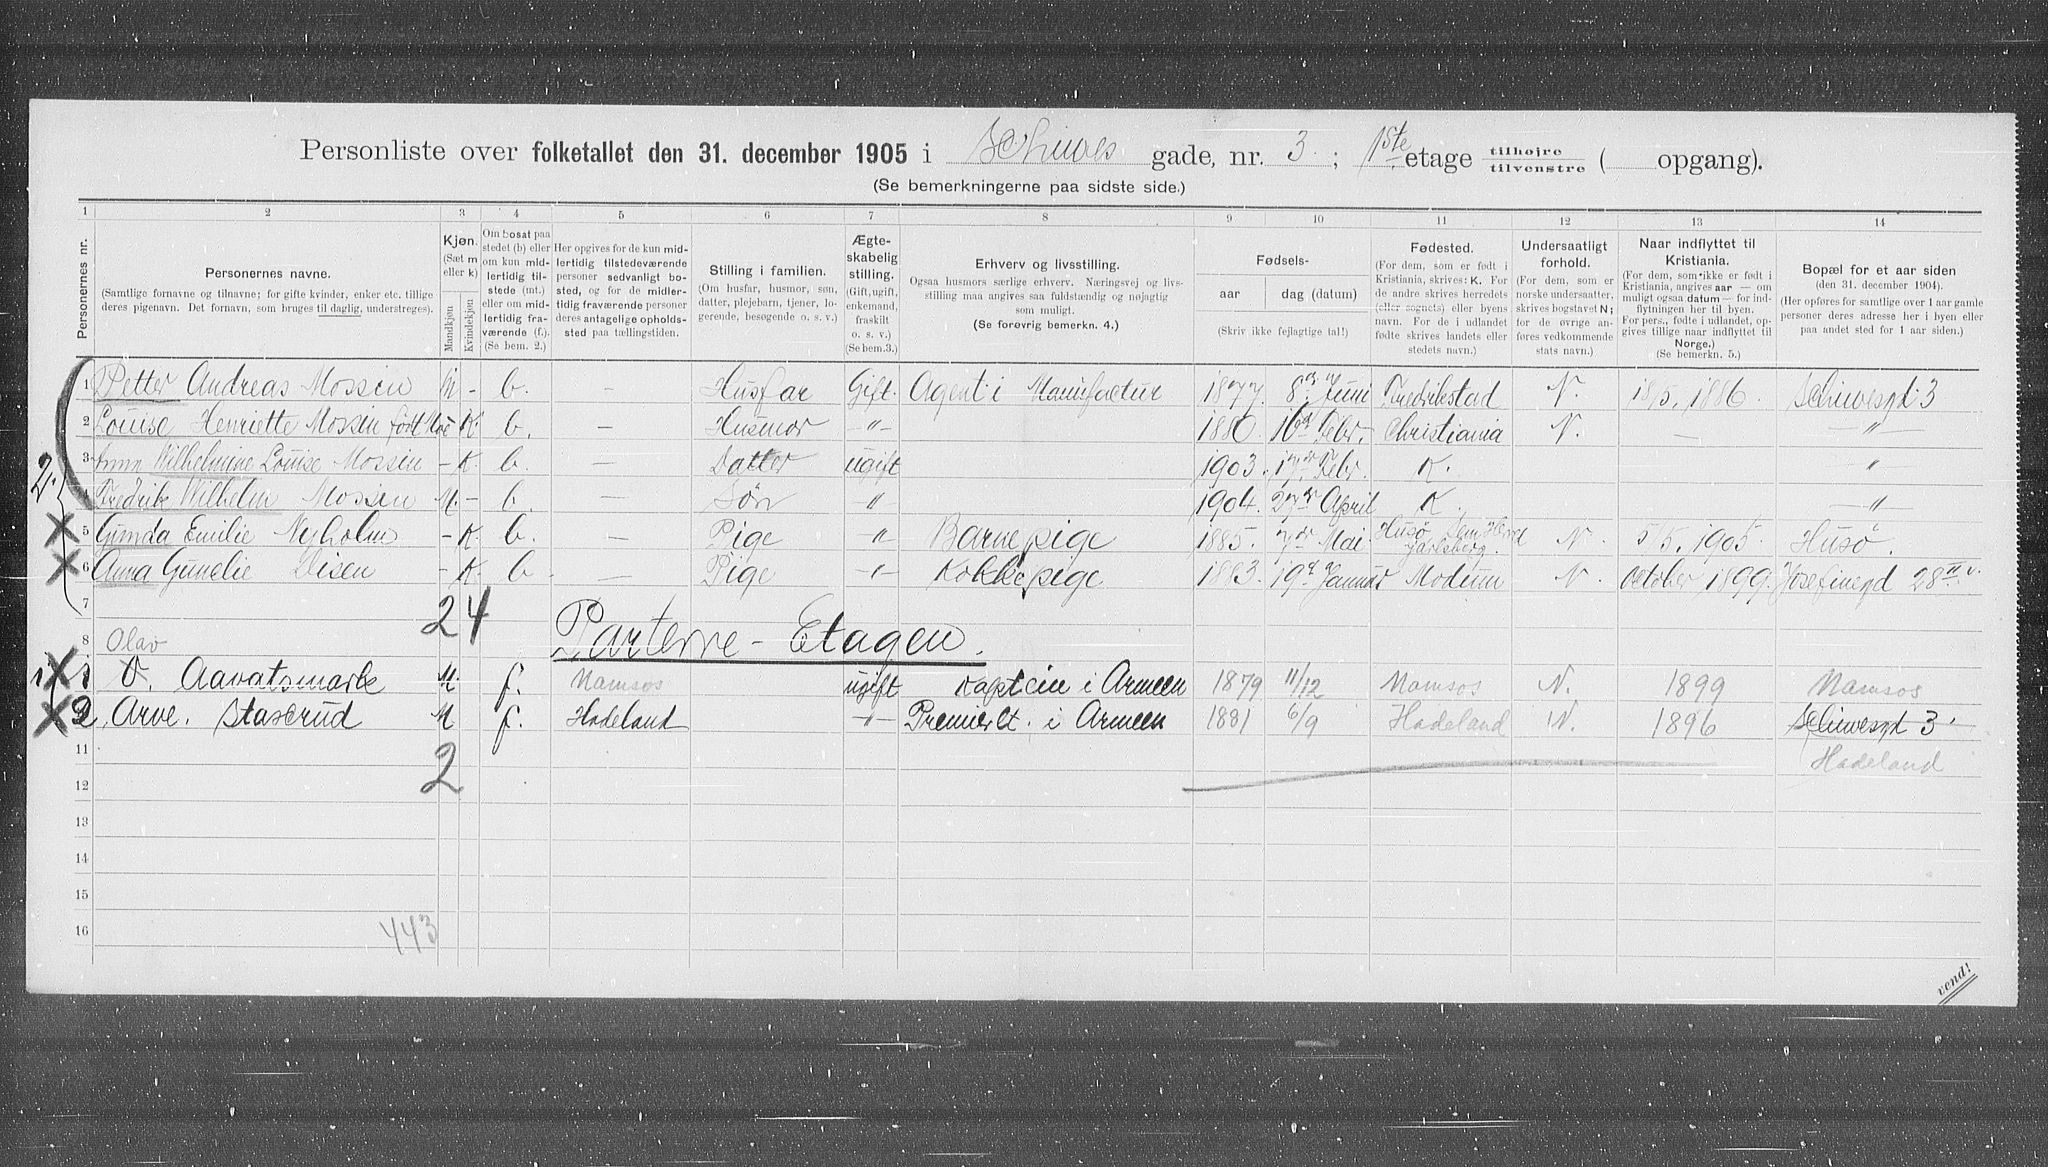 Personliste over folketallet den 31. december 1905 i Schives gade, nr. 3; 1ste etage tilhøjre tilvenstre ( opgang).
(Se bemerkningerne paa sidste side.)
1 2 3 4 5 6 7 8 9 10 11 12 13 14
Personernes nr.
Personernes navne.
(Samtlige fornavne og tilnavne; for gifte kvinder, enker etc. tillige deres pigenavn. Det fornavn, som bruges til daglig, understreges).
Kjøn. (Sæt m eller k)
Mandkjøn
Kvindekjøn
Om bosat paa stedet (b) eller om kun midlertidig tilstede (mt.) eller om midlertidig fraværende (f.). (Se bem. 2.)
Her opgives for de kun midlertidig tilstedeværende personer sedvanligt bosted, og for de midlertidig fraværende personer deres antagelige opholdssted paa tællingstiden.
Stilling i familien.
(Om husfar, husmor, søn, datter, plejebarn, tjener, logerende, besøgende o. s. v.)
Ægteskabelig stilling.
(Gift, ugift, enkemand, fraskilt o. s. v.) (Se bem. 3.)
Erhverv og livsstilling.
Ogsaa husmors særlige erhverv. Næringsvej og livsstilling maa angives saa fuldstændig og nøjagtig som muligt.
(Se forøvrig bemerkn. 4.)
Fødsels-
aar dag (datum)
(Skriv ikke fejlagtige tal!)
Fødested.
(For dem, som er født i Kristiania, skrives: K. For de andre skrives herredets (eller sognets) eller byens navn. For de i udlandet fødte skrives landets eller stedets navn.)
Undersaatligt forhold.
(For dem, som er norske undersaatter, skrives bogstavet N; for de øvrige anføres vedkommende stats navn.)
Naar indflyttet til Kristiania.
(For dem, som ikke er født i Kristiania, angives aar — om muligt ogsaa datum — for indflytningen her til byen. For pers., fødte i udlandet, opgives tillige naar indflyttet til Norge.)
(Se bemerkn. 5.)
Bopæl for et aar siden
(den 31. december 1904).
(Her opføres for samtlige over 1 aar gamle personer deres adresse her i byen eller paa andet sted for 1 aar siden.)
1 Petter Andreas Mossin M - b. - Husfar Gift. Agent i Manufactur 1877 8de Juni Fredrikstad N. 18/5, 1886 Schivesgd 3
2 Louise Henriette Mossin født - K. b. - Husmor -"- 1880 16de Febr. Christiania N. - -"-
3 Anna Wilhelmine Louise Mossin - K. b. - Datter ugift 1903. 17de Febr. K. -"-
2.
4 Fredrik Wilhelm Mossin M. - b. - Søn -"- 1904. 27de April K -"-
5 Gunda Emilie Nyholm - K. b. - Pige -"- Barnepige 1885. 7de Mai Husø Sem Herred Jarlsberg. N. 5/5, 1905. Husø.
6 Anna Gunelie Disen - K. b - Pige -"- Kokkepige 1883. 19de Januar Modum N. October 1899. Josefinegd 28 II v.
7
24
Parterre-Etagen.
8 Olav
1 O. Aavatsmark M. f. Namsos ugift Kaptein i Armeen 1879 11/12 Namsos N. 1899 Namsos
2. Arve. Staxrud M f. Hadeland -"- Premierlt. i Armeen 1881 6/9 Hadeland N. 1896 Schivesgd 3
11 Hadeland
2
12
13
14
15
16
443
vend!